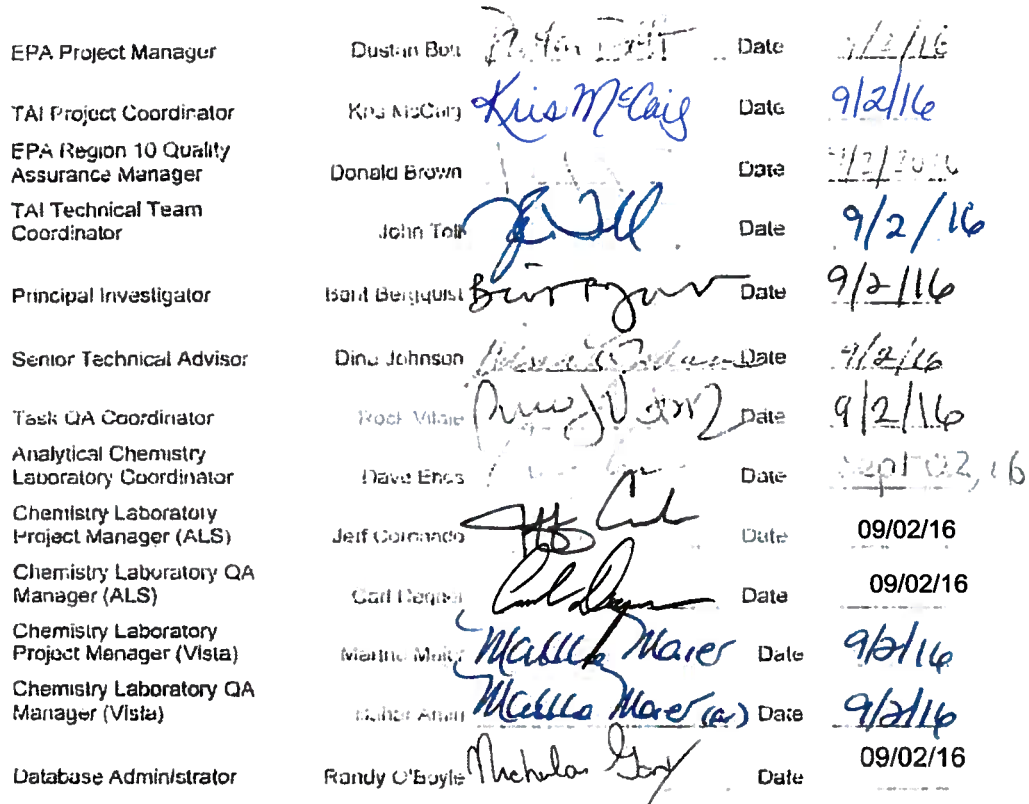 EPA Project Manager Dustan Bott Date 9/2/16
TAI Project Coordinator Kris McCaig Kris McCaig Date 9/2/16
EPA Region 10 Quality
Assurance Manager Donald Brown Date 9/2/2016
TAI Technical Team
Coordinator John Toll John Toll Date 9/2/16
Principal Investigator Date 9/2/16
Senior Technical Advisor Johnson Date 9/2/16
Task QA Coordinator Rock Vitale Date 9/2/16
Analytical Chemistry
Laboratory Coordinator Dave Enos Date Sept 02, 16
Chemistry Laboratory
Project Manager (ALS) Jeff Date 09/02/16
Chemistry Laboratory QA
Manager (ALS) Carl Degner Date 09/02/16
Chemistry Laboratory
Project Manager (Vista) Maier Maier Date 9/2/16
Chemistry Laboratory QA
Manager (Vista) Maier Date 9/2/16
Database Administrator Randy O'Boyle Nicholas Gary Date 09/02/16